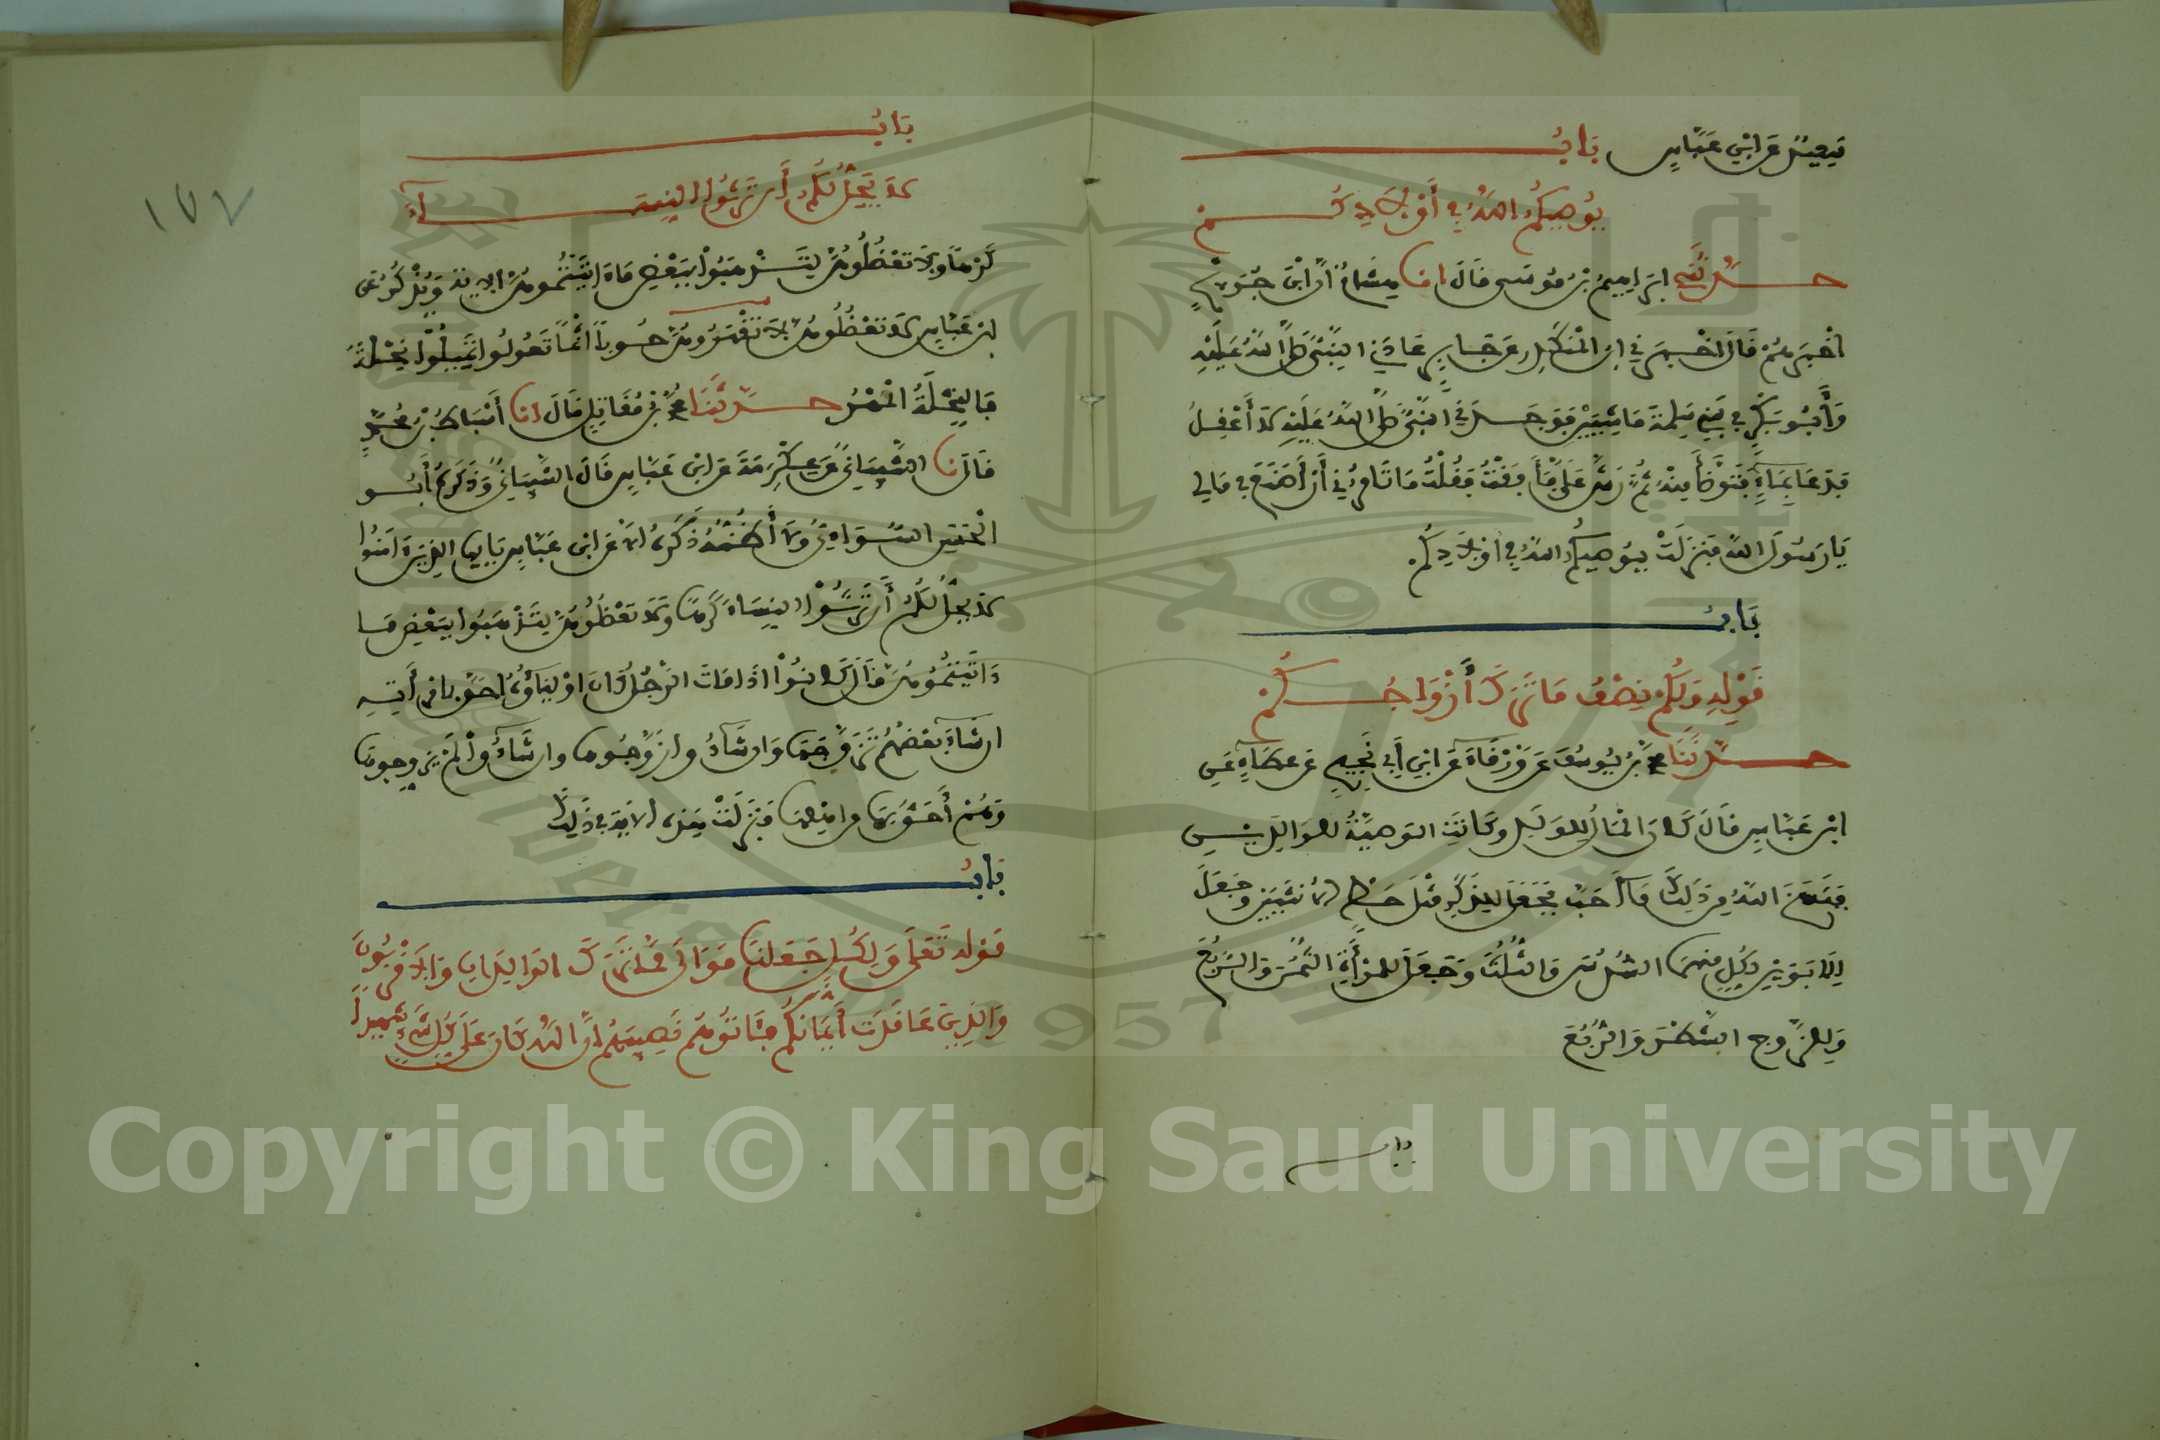 سعيد عن ابن عباس باب
يوصيكم الله في أولادكم
حدثني ابراهيم بن موسى قال انا هشام أن ابن جريج
اخبرهم قال اخبرني ابن المنكدر عن جابر عادني النبي صلى الله عليه
وأبو بكر في بني سلمة ماشيين فوجدني النبي صلى الله عليه لا أعقل
فدعا بماء فتوضأ منه ثم رش علي فأفقت فقلت ما تامرني أن أصنع في مالي
يا رسول الله فنزلت يوصيكم الله في أولادكم
باب
قوله ولكم نصف ما ترك أزواجكم
حدثنا محمد بن يوسف عن ورقاء عن ابن أبي نجيح عن عطاء عن
ابن عباس قال كان المال للولد وكانت الوصية للوالدين
فنسخ الله من ذلك ما أحب فجعل للذكر مثل حظ الانثيين وجعل
للابوين لكل منهما السدس والثلث وجعل للمرأة الثمن والربع
وللزوج الشطر والربع
باب
١٥٧
باب
لا يحل لكم أن ترثوا النساء
كرها ولا تعضلوهن لتذهبوا ببعض ما ءاتيتموهن الاية ويذكر عن
ابن عباس لا تعضلوهن لا تقهروهن حوبا اثما تعولوا تميلوا نحلة
فالنحلة المهر حدثنا محمد بن مقاتل قال انا أسباط بن محمد
قال نا الشيباني عن عكرمة عن ابن عباس قال الشيباني وذكره أبو
الحسن السوائي ولا أظنه ذكره الا عن ابن عباس يايها الذين ءامنوا
لا يحل لكم أن ترثوا النساء كرها ولا تعضلوهن لتذهبوا ببعض ما
ءاتيتموهن قال كانوا اذا مات الرجل كان اولياؤه احق بامرأته
ان شاء بعضهم تزوجها وان شاءوا زوجوها وان شاءوا لم يزوجوها
وهم أحق بها من اهلها فنزلت هذه الاية في ذلك
باب
قوله تعلى ولكل جعلنا موالي مما ترك الوالدان والاقربون
والذين عاقدت أيمانكم فئاتوهم نصيبهم إن الله كان على كل شيء شهيدا
Copyright © King Saud University
1957